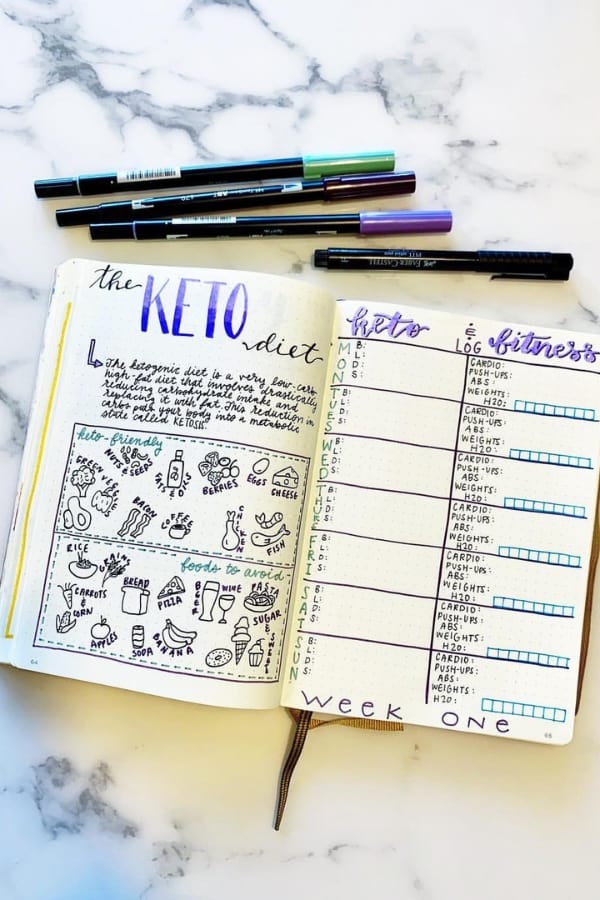 FABER-CASTELL
the
KETO
diet
The ketogenic diet is a very low-carb
high-fat diet that involves drastically
reducing carbohydrate intake and
replacing it with fat. This reduction in
carbs puts your body into a metabolic
state called KETOSIS.
keto-friendly
GREEN VEGGIES
NUTS & SEEDS
FATS & OILS
BERRIES
EGGS
CHEESE
BACON
COFFEE
CHICKEN
FISH
foods to avoid
RICE
GRAINS
CARROTS
&
CORN
BREAD
PIZZA
BEER
WINE
PASTA
APPLES
SODA
BANANA
SUGAR
& SWEETS
64
keto
&
LOG
fitness
MON
B:
L:
D:
S:
CARDIO:
PUSH-UPS:
ABS:
WEIGHTS:
H2O:
TUES
B:
L:
D:
S:
CARDIO:
PUSH-UPS:
ABS:
WEIGHTS:
H2O:
WED
B:
L:
D:
S:
CARDIO:
PUSH-UPS:
ABS:
WEIGHTS:
H2O:
THUR
B:
L:
D:
S:
CARDIO:
PUSH-UPS:
ABS:
WEIGHTS:
H2O:
FRI
B:
L:
D:
S:
CARDIO:
PUSH-UPS:
ABS:
WEIGHTS:
H2O:
SAT
B:
L:
D:
S:
CARDIO:
PUSH-UPS:
ABS:
WEIGHTS:
H2O:
SUN
B:
L:
D:
S:
CARDIO:
PUSH-UPS:
ABS:
WEIGHTS:
H2O:
WEEK ONE
65